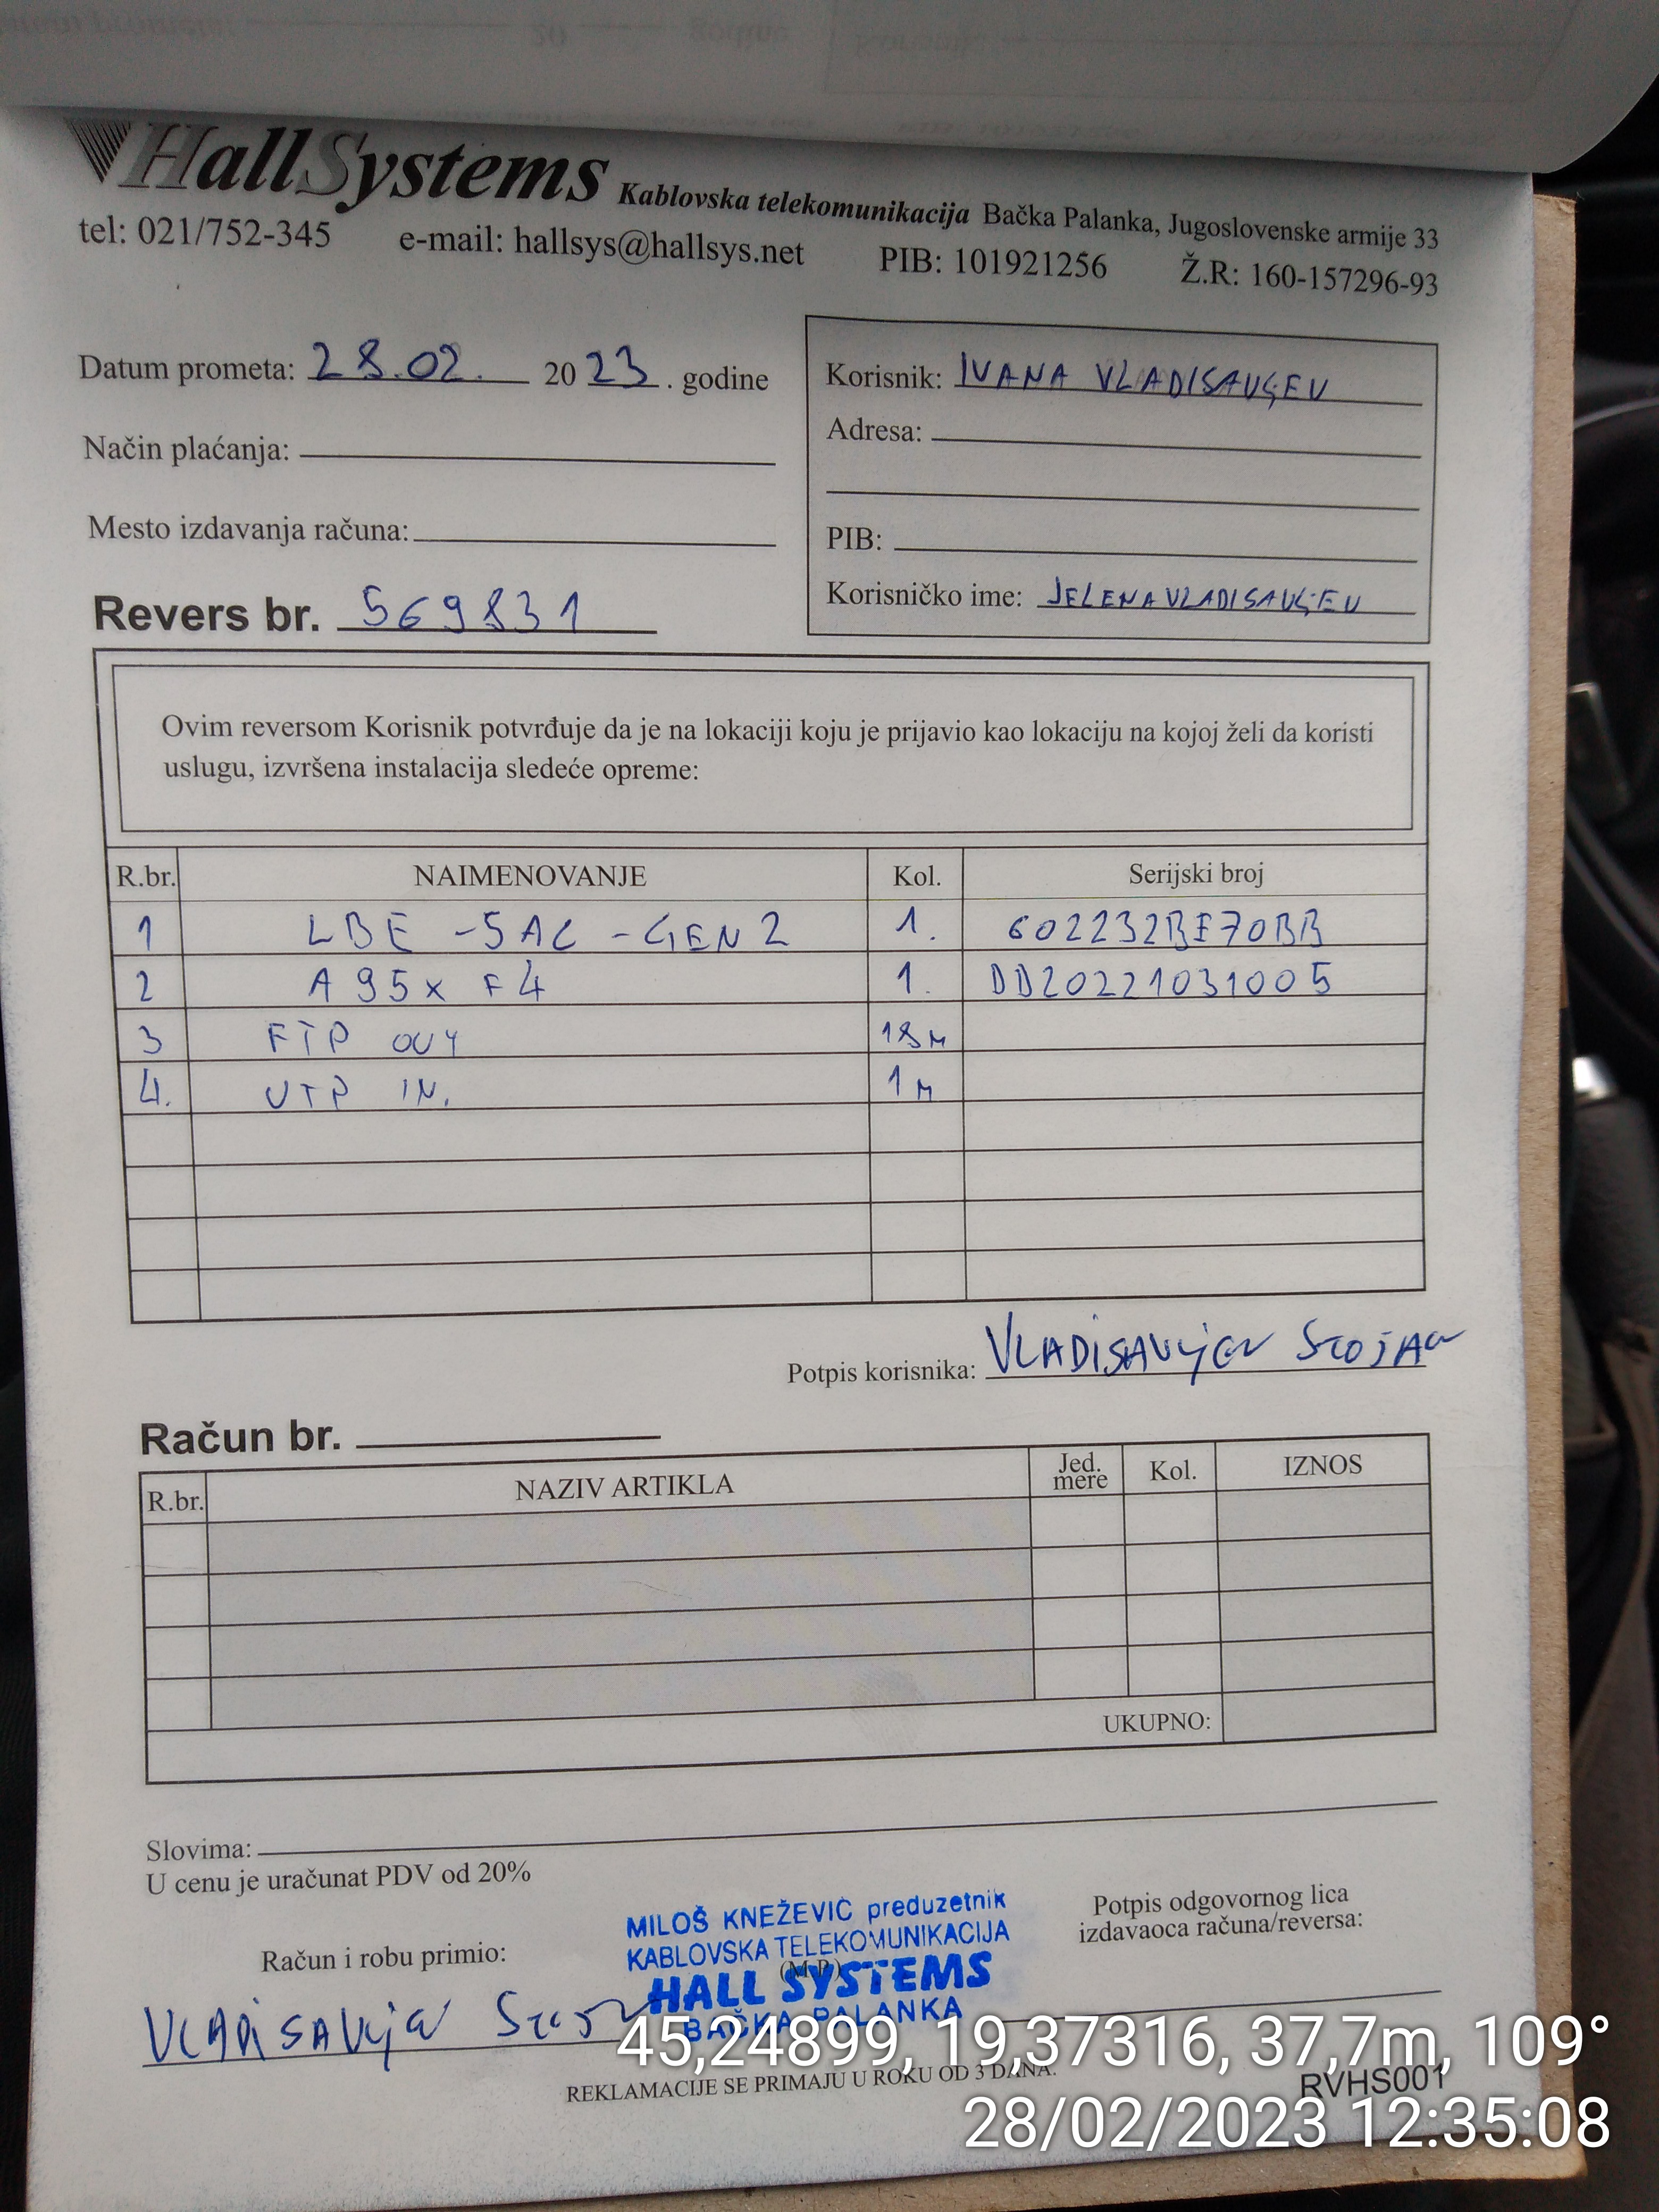 HallSystems Kablovska telekomunikacija Bačka Palanka, Jugoslovenske armije 33
tel: 021/752-345 e-mail: hallsys@hallsys.net PIB: 101921256 Ž.R: 160-157296-93
Datum prometa: 28.02. 2023. godine
Način plaćanja:
Mesto izdavanja računa:
Revers br. 569831
Korisnik: IVANA VLADISAVLJEV
Adresa:
PIB:
Korisničko ime: JELENAVLADISAVLJEV
Ovim reversom Korisnik potvrđuje da je na lokaciji koju je prijavio kao lokaciju na kojoj želi da koristi
uslugu, izvršena instalacija sledeće opreme:
R.br. NAIMENOVANJE Kol. Serijski broj
1 LBE -5AC -GEN2 1. 602232BE70BB
2 A95x F4 1. DD20221031005
3 FTP OUT 18m
4. UTP IN. 1m
Potpis korisnika: VLADISAVLJEV STOJAN
Račun br.
R.br. NAZIV ARTIKLA Jed. mere Kol. IZNOS
UKUPNO:
Slovima:
U cenu je uračunat PDV od 20%
Račun i robu primio:
VLADISAVLJEV
MILOŠ KNEŽEVIĆ preduzetnik
KABLOVSKA TELEKOMUNIKACIJA
(M.P.)
HALL SYSTEMS
BAČKA PALANKA
Potpis odgovornog lica
izdavaoca računa/reversa:
45,24899, 19,37316, 37,7m, 109°
REKLAMACIJE SE PRIMAJU U ROKU OD 3 DANA.
RVHS001
28/02/2023 12:35:08